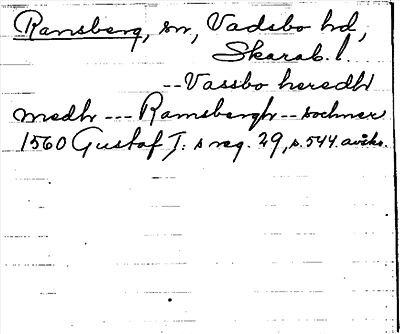 Ramsberg, sn, Vadsbo hd,
Skarab. l.
-- Vassbo heredh
medh --- Ramsbergh -- sochner
1560 Gustaf I: s reg. 29, s. 544. avskr.